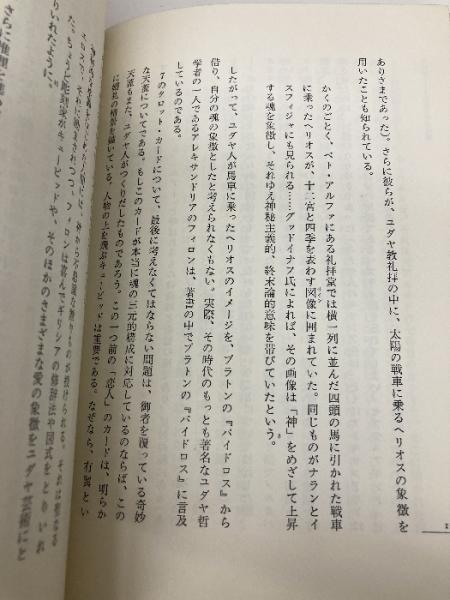 ありさまであった)。さらに彼らが、ユダヤ教礼拝の中に、太陽の戦車に乗るヘリオスの象徴を
用いたことも知られている。
かくのごとく、ベト・アルファにある礼拝堂では横一列に並んだ四頭の馬に引かれた戦車
に乗ったヘリオスが、十二宮と四季を表わす図像に囲まれていた。同じものがナランとイ
スフィジャにも見られる……グッドイナフ氏によれば、その画像は「神」をめざして上昇
する魂を象徴し、それゆえ神秘主義的、終末論的意味を帯びていたという。
したがって、ユダヤ人が馬車に乗ったヘリオスのイメージを、プラトンの『パイドロス』から
借り、自分の魂の象徴としたと考えられなくもない。実際、その時代のもっとも著名なユダヤ哲
学者の一人であるアレキサンドリアのフィロンは、著書の中でプラトンの『パイドロス』に言及
しているのである。
7のタロット・カードについて、最後に考えなくてはならない問題は、御者を覆っている奇妙
な天蓋についてである。もしこのカードが本当に魂の三元的構成に対応しているのならば、この
天蓋もまた、ユダヤ人がつくりだしたものであろう。この一つ前の「恋人」のカードは、明らか
に婚礼の情景を描いている。人物の上を飛ぶキューピッドは重要である。なぜなら、有翼とい
授けられる。それは聖なる
エロスで、それに
フィロンは喜んで、ギリシアの修辞法や図式をとりいれ
た。ちょうど彫刻家がキューピッドや、そのほかのさまざまな愛の象徴をユダヤ芸術にと
りいれたように。
さらに推理を進